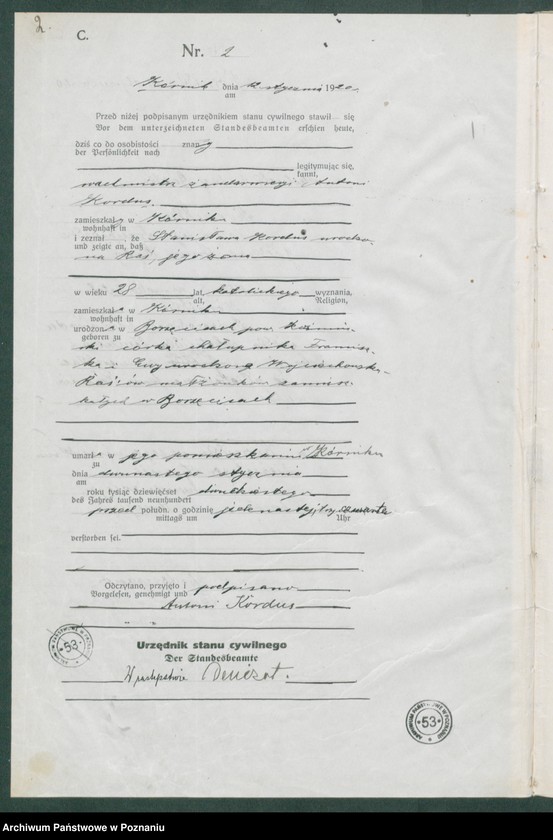 2.
C.
Nr. 2
Kórnik dnia 12 stycznia 1920
am
Przed niżej podpisanym urzędnikiem stanu cywilnego stawił się
Vor dem unterzeichneten Standesbeamten erschien heute,
dziś co do osobistości zna
der Persönlichkeit nach
legitymując się,
kannt,
wachmistrz żandarmerji, Antoni
Kordus
zamieszkały w Kórniku
wohnhaft in
i zeznał, że Stanisława Kordus urodzo-
und zeigte an, daß
na Raś, jego żona
w wieku 28 lat, katolickiego wyznania,
alt, Religion,
zamieszkała w Kórniku
wohnhaft in
urodzona w Borzęcicach pow.
geboren zu
ski córka chałupnika Francisz-
ka i urodzonej Wojciechowska
Rasiów małżonków zamiesz-
kałych w Borzęcicach
umarła w jego pomieszkaniu Kórniku
zu
dnia dwunastego stycznia
am
roku tysiąc dziewięćset dwudziestego
des Jahres tausend neunhundert
przed połudn. o godzinie jedenastej i trzy czwarte
mittags um Uhr
verstorben sei.
Odczytano, przyjęto i podpisano
Vorgelesen, genehmigt und
Antoni Kordus
Urzędnik stanu cywilnego
Der Standesbeamte
W zastępstwie Denizot.
53
ARCHIWUM PAŃSTWOWE W POZNANIU
53
Archiwum Państwowe w Poznaniu